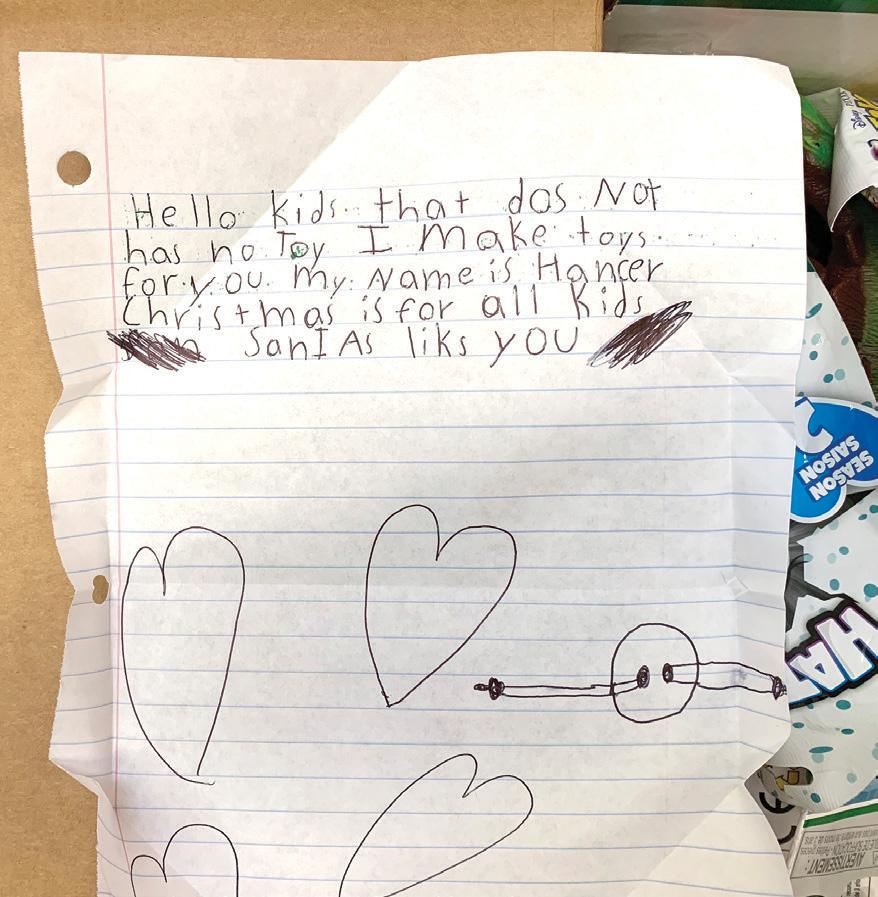 Hello kids that dos Not
has no Toy I Make toys
for you. My Name is Hancer
Christmas is for all kids
SanIAs liks you
Disney
SEASON
SAISON
WHAT
CE
AVERTISSEMENT :